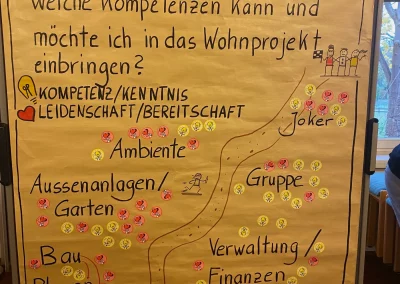 welche Kompetenzen kann und
möchte ich in das Wohnprojekt
einbringen?
KOMPETENZ/KENNTNIS
LEIDENSCHAFT/BEREITSCHAFT
Joker
Ambiente
Aussenanlagen/
Garten
Gruppe
Bau
Verwaltung/
Finanzen